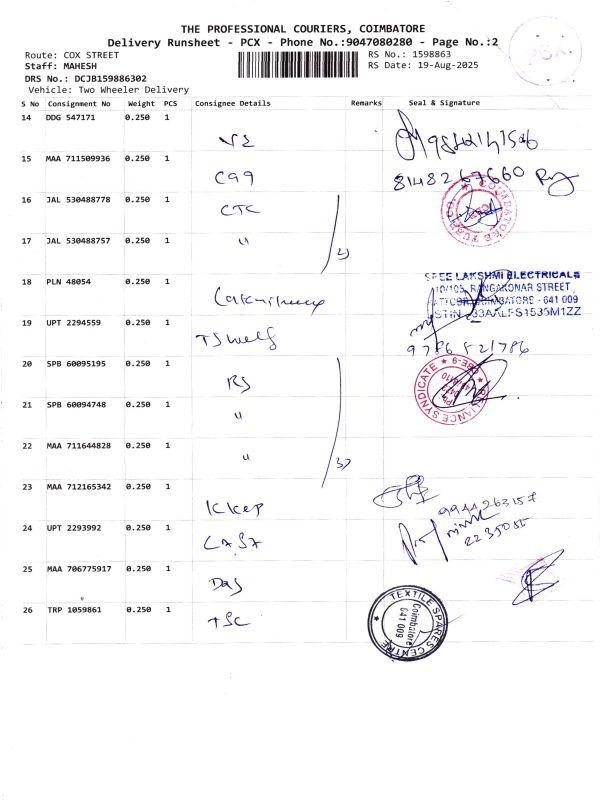 THE PROFESSIONAL COURIERS, COIMBATORE
Delivery Runsheet - PCX - Phone No.:9047080280 - Page No.:2
Route: COX STREET
RS No.: 1598863
Staff: MAHESH
RS Date: 19-Aug-2025
DRS No.: DCJB159886302
Vehicle: Two Wheeler Delivery
PCX
S No Consignment No Weight PCS Consignee Details Remarks Seal & Signature
14 DDG 547171 0.250 1
VS
15 MAA 711509936 0.250 1
C99
8148267660
16 JAL 530488778 0.250 1
CTC
COIMBATORE TUBE CO.
17 JAL 530488757 0.250 1
"
2)
18 PLN 48054 0.250 1
SREE LAKSHMI ELECTRICALS
10/105, RANGAKONAR STREET
KATTOOR, COIMBATORE - 641 009
GSTIN :33AALFS1535M1ZZ
19 UPT 2294559 0.250 1
9786521786
20 SPB 60095195 0.250 1
RS
RELIANCE SYNDICATE
CBE-9
21 SPB 60094748 0.250 1
"
22 MAA 711644828 0.250 1
"
3)
23 MAA 712165342 0.250 1
KKep
9944263157
24 UPT 2293992 0.250 1
2235055
25 MAA 706775917 0.250 1
Das
26 TRP 1059861 0.250 1
TSC
TEXTILE SPARES CENTRE
Coimbatore
641 009